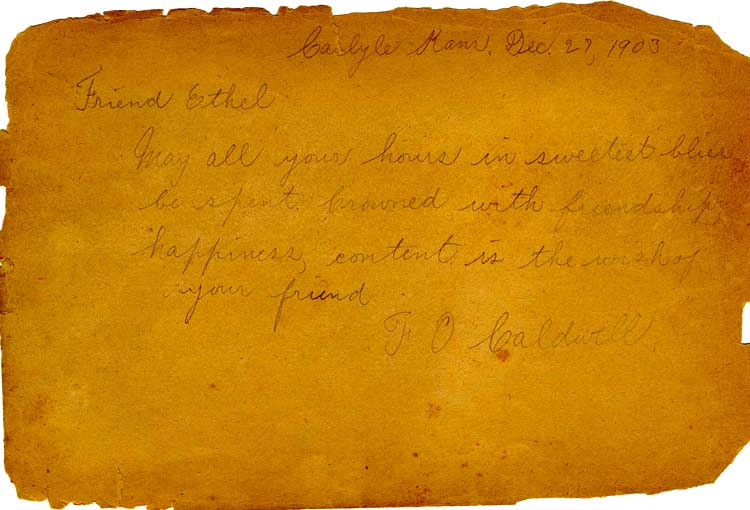 Carlyle Kans. Dec. 27, 1903
Friend Ethel
May all your hours in sweetest bliss
be spent. Crowned with friendship,
happiness, content. is the wish of
your friend
F O Caldwell